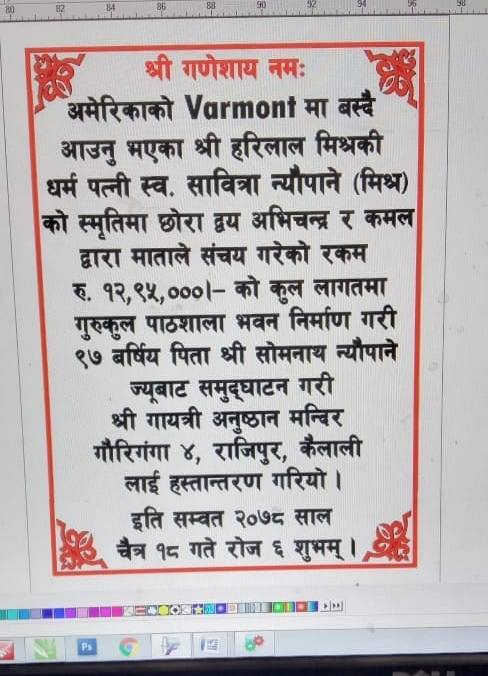 80 82 84 86 88 90 92 94 96 98
श्री गणेशाय नमः
अमेरिकाको Varmont मा बस्दै
आउनु भएका श्री हरिलाल मिश्रकी
धर्म पत्नी स्व. सावित्रा न्यौपाने (मिश्र)
को स्मृतिमा छोरा द्वय अभिचन्द्र र कमल
द्वारा माताले संचय गरेको रकम
रु. १२,९५,०००।– को कुल लागतमा
गुरुकुल पाठशाला भवन निर्माण गरी
९७ बर्षिय पिता श्री सोमनाथ न्यौपाने
ज्यूबाट समुद्घाटन गरी
श्री गायत्री अनुष्ठान मन्दिर
गौरिगंगा ४, राजिपुर, कैलाली
लाई हस्तान्तरण गरियो ।
इति सम्वत २०७८ साल
चैत्र १८ गते रोज ६ शुभम् ।
Ps